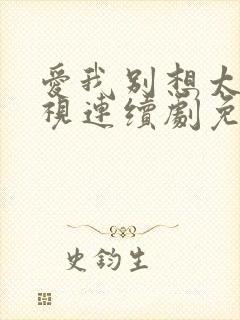 愛我別想太
視連續劇免
史鈞生